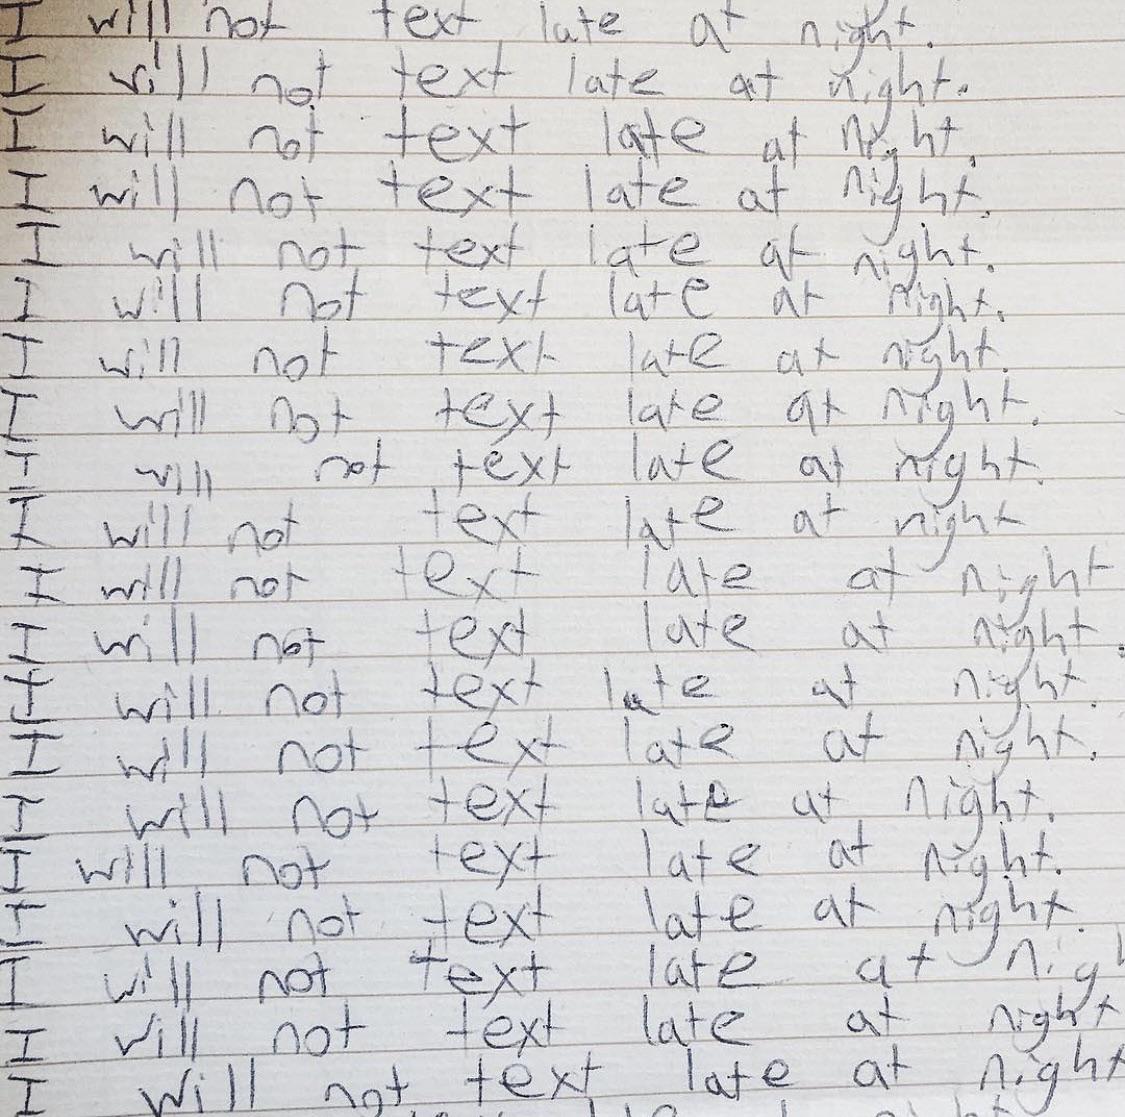 I will not text late at night.
I will not text late at night.
I will not text late at night.
I will not text late at night.
I will not text late at night.
I will not text late at night.
I will not text late at night.
I will not text late at night.
I will not text late at night.
I will not text late at night
I will not text late at night
I will not text late at night.
I will not text late at night.
I will not text late at night.
I will not text late at night.
I will not text late at night.
I will not text late at night.
I will not text late at nigh
I will not text late at night
I will not text late at night